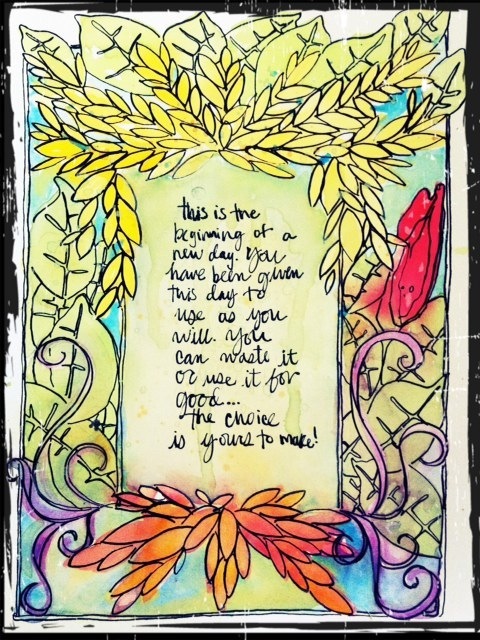 this is the
beginning of a
new day. You
have been given
this day to
use as you
will. You
can waste it
or use it for
good...
the choice
is yours to make!